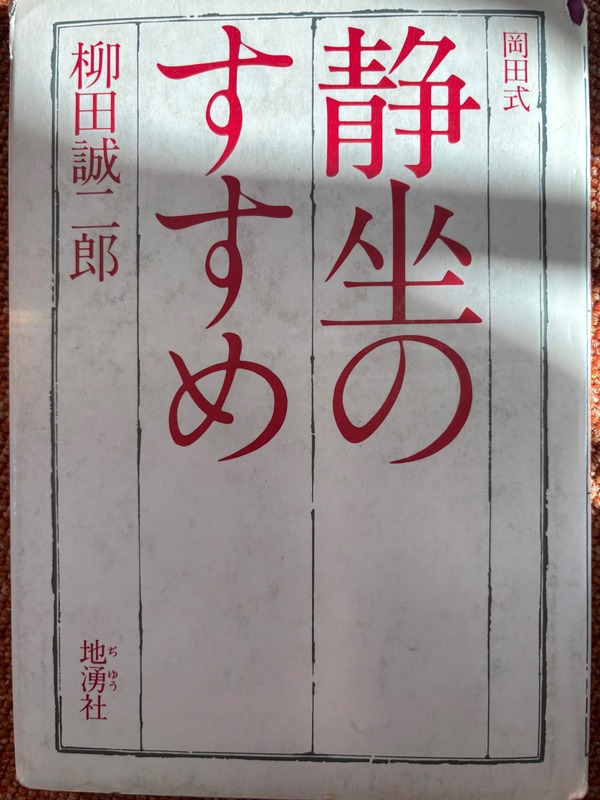 岡田式
静坐の
すすめ
柳田誠二郎
地湧社
ぢゆう